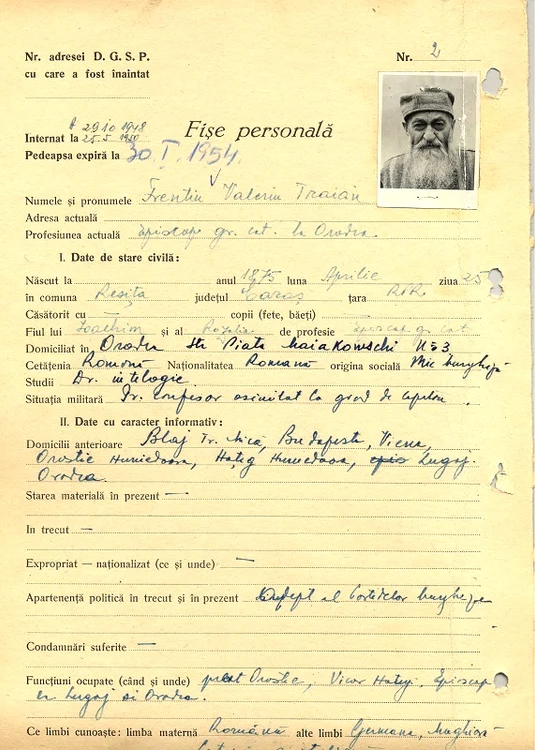 Nr. adresei D. G. S. P.
cu care a fost înaintat
Nr. 2
29 10 1948
Internat la 25.5 1950
Fișe personală
Pedeapsa expiră la 30. I. 1954.
Numele și pronumele Frentiu Valeriu Traian
Adresa actuală
Profesiunea actuală Episcop gr. cat. la Oradea.
I. Date de stare civilă:
Născut la anul 1875 luna Aprilie ziua 25
în comuna Reșița județul Caraș țara RPR
Căsătorit cu copii (fete, băeți)
Fiul lui Ioachim și al Rozalia de profesie Episcop gr. cat
Domiciliat în Oradea Str Piata Maiakowschi No 3
Cetățenia Română Naționalitatea Romana origina socială Mic burgheză
Studii Dr. in teologie
Situația militară Pr. Confesor asimilat la grad de capitan.
II. Date cu caracter informativ:
Domicilii anterioare Blaj Tr. Mică, Budapesta, Viena,
Orastie Hunedoara, Hațeg Hunedoara, Lugoj.
Oradea.
Starea materială în prezent —
In trecut —
Expropriat — naționalizat (ce și unde) —
Apartenența politică în trecut și în prezent Adept al Partidelor burgheze
Condamnări suferite —
Funcțiuni ocupate (când și unde) preot Orastie, Vicar Hateg. Episcop
la Lugoj si Oradea.
Ce limbi cunoaște: limba maternă Română alte limbi Germana, Maghiară